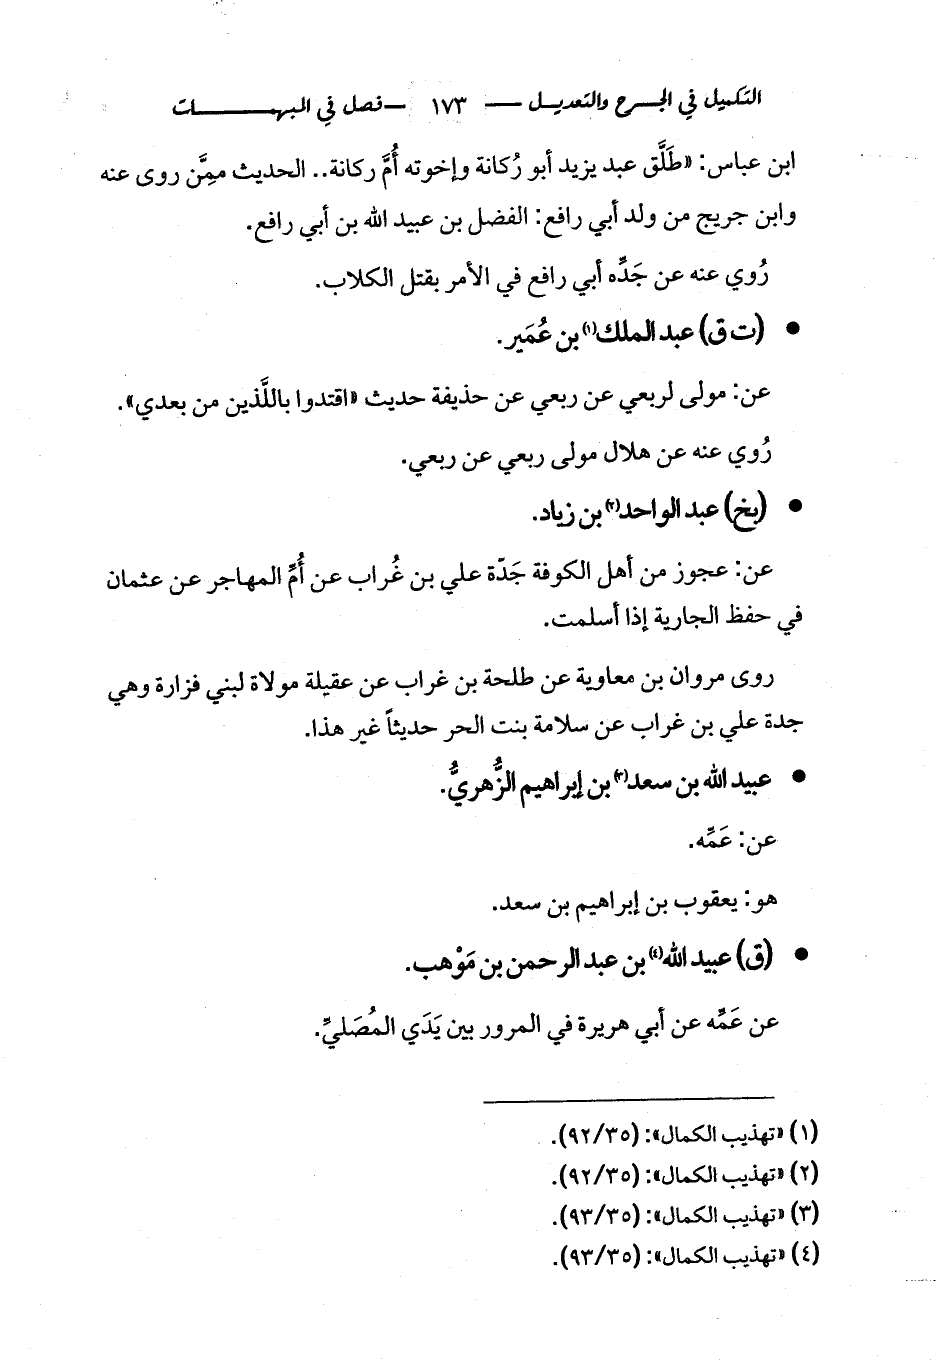 التكميل في الجرح والتعديل — ١٧٣ — فصل في المبهمات
ابن عباس: «طَلَّق عبد يزيد أبو رُكانة وإخوته أُمَّ ركانة.. الحديث ممِنَّ روى عنه
وابن جريج من ولد أبي رافع: الفضل بن عبيد الله بن أبي رافع.
رُوي عنه عن جَدِّه أبي رافع في الأمر بقتل الكلاب.
• (ت ق) عبد الملك(١) بن عُمَير.
عن: مولى لربعي عن ربعي عن حذيفة حديث «اقتدوا باللَّذين من بعدي».
رُوي عنه عن هلال مولى ربعي عن ربعي.
• (بخ) عبد الواحد(٢) بن زياد.
عن: عجوز من أهل الكوفة جَدّة علي بن غُراب عن أُمِّ المهاجر عن عثمان
في حفظ الجارية إذا أسلمت.
روى مروان بن معاوية عن طلحة بن غراب عن عقيلة مولاة لبني فزارة وهي
جدة علي بن غراب عن سلامة بنت الحر حديثاً غير هذا.
• عبيد الله بن سعد(٣) بن إبراهيم الزُّهريُّ.
عن: عَمِّه.
هو: يعقوب بن إبراهيم بن سعد.
• (ق) عبيد الله(٤) بن عبد الرحمن بن مَوْهب.
عن عَمِّه عن أبي هريرة في المرور بين يَدَي المُصَليِّ.
(١) «تهذيب الكمال»: (٩٢/٣٥).
(٢) «تهذيب الكمال»: (٩٢/٣٥).
(٣) «تهذيب الكمال»: (٩٣/٣٥).
(٤) «تهذيب الكمال»: (٩٣/٣٥).